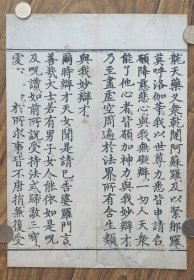 龍天藥叉衆乾闥阿蘇羅及以緊那羅
莫呼洛伽等我以世尊力悉皆申請召
願降慈悲心與我無礙辯一切人天衆
能了他心者皆願加神力與我妙辯才
乃至盡虛空周遍於法界所有含生類
與我妙辯才
爾時辯才天女聞是請已告婆羅門言
善哉大士若有男子女人能依如是呪
及呪讚如前所說受持法式歸敬三寳
於所求事皆不唐捐兼復受